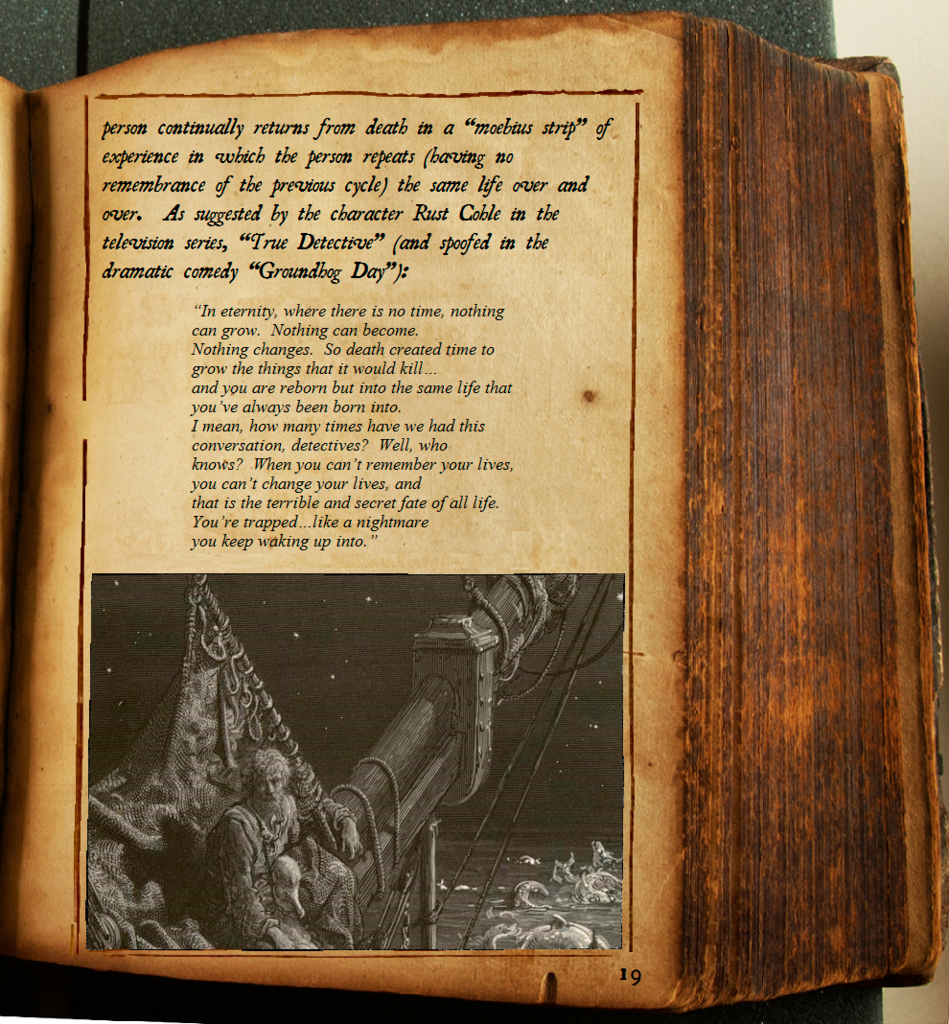 person continually returns from death in a “moebius strip” of
experience in which the person repeats (having no
remembrance of the previous cycle) the same life over and
over.  As suggested by the character Rust Cohle in the
television series, “True Detective” (and spoofed in the
dramatic comedy “Groundhog Day”):
“In eternity, where there is no time, nothing
can grow.  Nothing can become.
Nothing changes.  So death created time to
grow the things that it would kill…
and you are reborn but into the same life that
you’ve always been born into.
I mean, how many times have we had this
conversation, detectives?  Well, who
knows?  When you can’t remember your lives,
you can’t change your lives, and
that is the terrible and secret fate of all life.
You’re trapped…like a nightmare
you keep waking up into.”
19